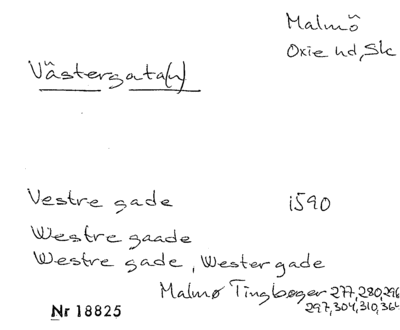 Malmö
Oxie hd, Sk
Västergata(n)
Vestre gade 1590
Westre gaade
Westre gade, Wester gade
Malmø Tingbøger 277, 280, 296
297, 304, 310, 364
Nr 18825